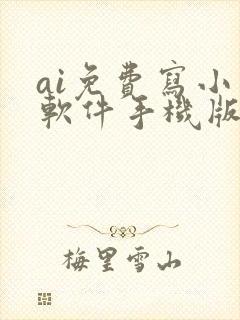 ai免費寫小
軟件手機版
梅里雪山